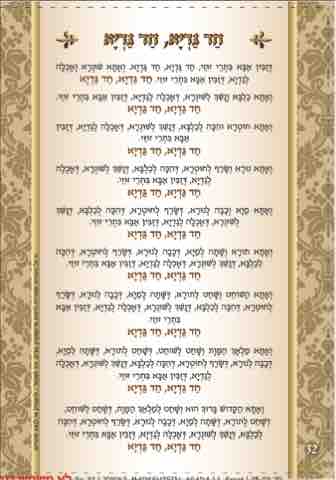 חַד גַּדְיָא, חַד גַּדְיָא
דְּזַבִּין אַבָּא בִּתְרֵי זוּזֵי, חַד גַּדְיָא, חַד גַּדְיָא. וְאָתָא שׁוּנְרָא וְאָכְלָה
לְגַדְיָא, דְּזַבִּין אַבָּא בִּתְרֵי זוּזֵי. חַד גַּדְיָא, חַד גַּדְיָא
וְאָתָא כַלְבָּא וְנָשַׁךְ לְשׁוּנְרָא, דְּאָכְלָה לְגַדְיָא, דְּזַבִּין אַבָּא בִּתְרֵי זוּזֵי.
חַד גַּדְיָא, חַד גַּדְיָא
וְאָתָא חוּטְרָא וְהִכָּה לְכַלְבָּא, דְּנָשַׁךְ לְשׁוּנְרָא, דְּאָכְלָה לְגַדְיָא, דְּזַבִּין
אַבָּא בִּתְרֵי זוּזֵי.
חַד גַּדְיָא, חַד גַּדְיָא
וְאָתָא נוּרָא וְשָׂרַף לְחוּטְרָא, דְּהִכָּה לְכַלְבָּא, דְּנָשַׁךְ לְשׁוּנְרָא, דְּאָכְלָה
לְגַדְיָא, דְּזַבִּין אַבָּא בִּתְרֵי זוּזֵי.
חַד גַּדְיָא, חַד גַּדְיָא
וְאָתָא מַיָּא וְכָבָה לְנוּרָא, דְּשָׂרַף לְחוּטְרָא, דְּהִכָּה לְכַלְבָּא, דְּנָשַׁךְ
לְשׁוּנְרָא, דְּאָכְלָה לְגַדְיָא, דְּזַבִּין אַבָּא בִּתְרֵי זוּזֵי.
חַד גַּדְיָא, חַד גַּדְיָא
וְאָתָא תוֹרָא וְשָׁתָה לְמַיָּא, דְּכָבָה לְנוּרָא, דְּשָׂרַף לְחוּטְרָא, דְּהִכָּה
לְכַלְבָּא, דְּנָשַׁךְ לְשׁוּנְרָא, דְּאָכְלָה לְגַדְיָא, דְּזַבִּין אַבָּא בִּתְרֵי זוּזֵי.
חַד גַּדְיָא, חַד גַּדְיָא
וְאָתָא הַשּׁוֹחֵט וְשָׁחַט לְתוֹרָא, דְּשָׁתָה לְמַיָּא, דְּכָבָה לְנוּרָא, דְּשָׂרַף
לְחוּטְרָא, דְּהִכָּה לְכַלְבָּא, דְּנָשַׁךְ לְשׁוּנְרָא, דְּאָכְלָה לְגַדְיָא, דְּזַבִּין אַבָּא
בִּתְרֵי זוּזֵי.
חַד גַּדְיָא, חַד גַּדְיָא
וְאָתָא מַלְאַךְ הַמָּוֶת וְשָׁחַט לְשׁוֹחֵט, דְּשָׁחַט לְתוֹרָא, דְּשָׁתָה לְמַיָּא,
דְּכָבָה לְנוּרָא, דְּשָׂרַף לְחוּטְרָא, דְּהִכָּה לְכַלְבָּא, דְּנָשַׁךְ לְשׁוּנְרָא, דְּאָכְלָה
לְגַדְיָא, דְּזַבִּין אַבָּא בִּתְרֵי זוּזֵי.
חַד גַּדְיָא, חַד גַּדְיָא
וְאָתָא הַקָּדוֹשׁ בָּרוּךְ הוּא וְשָׁחַט לְמַלְאַךְ הַמָּוֶת, דְּשָׁחַט לְשׁוֹחֵט,
דְּשָׁחַט לְתוֹרָא, דְּשָׁתָה לְמַיָּא, דְּכָבָה לְנוּרָא, דְּשָׂרַף לְחוּטְרָא, דְּהִכָּה
לְכַלְבָּא, דְּנָשַׁךְ לְשׁוּנְרָא, דְּאָכְלָה לְגַדְיָא, דְּזַבִּין אַבָּא בִּתְרֵי זוּזֵי.
חַד גַּדְיָא, חַד גַּדְיָא
32